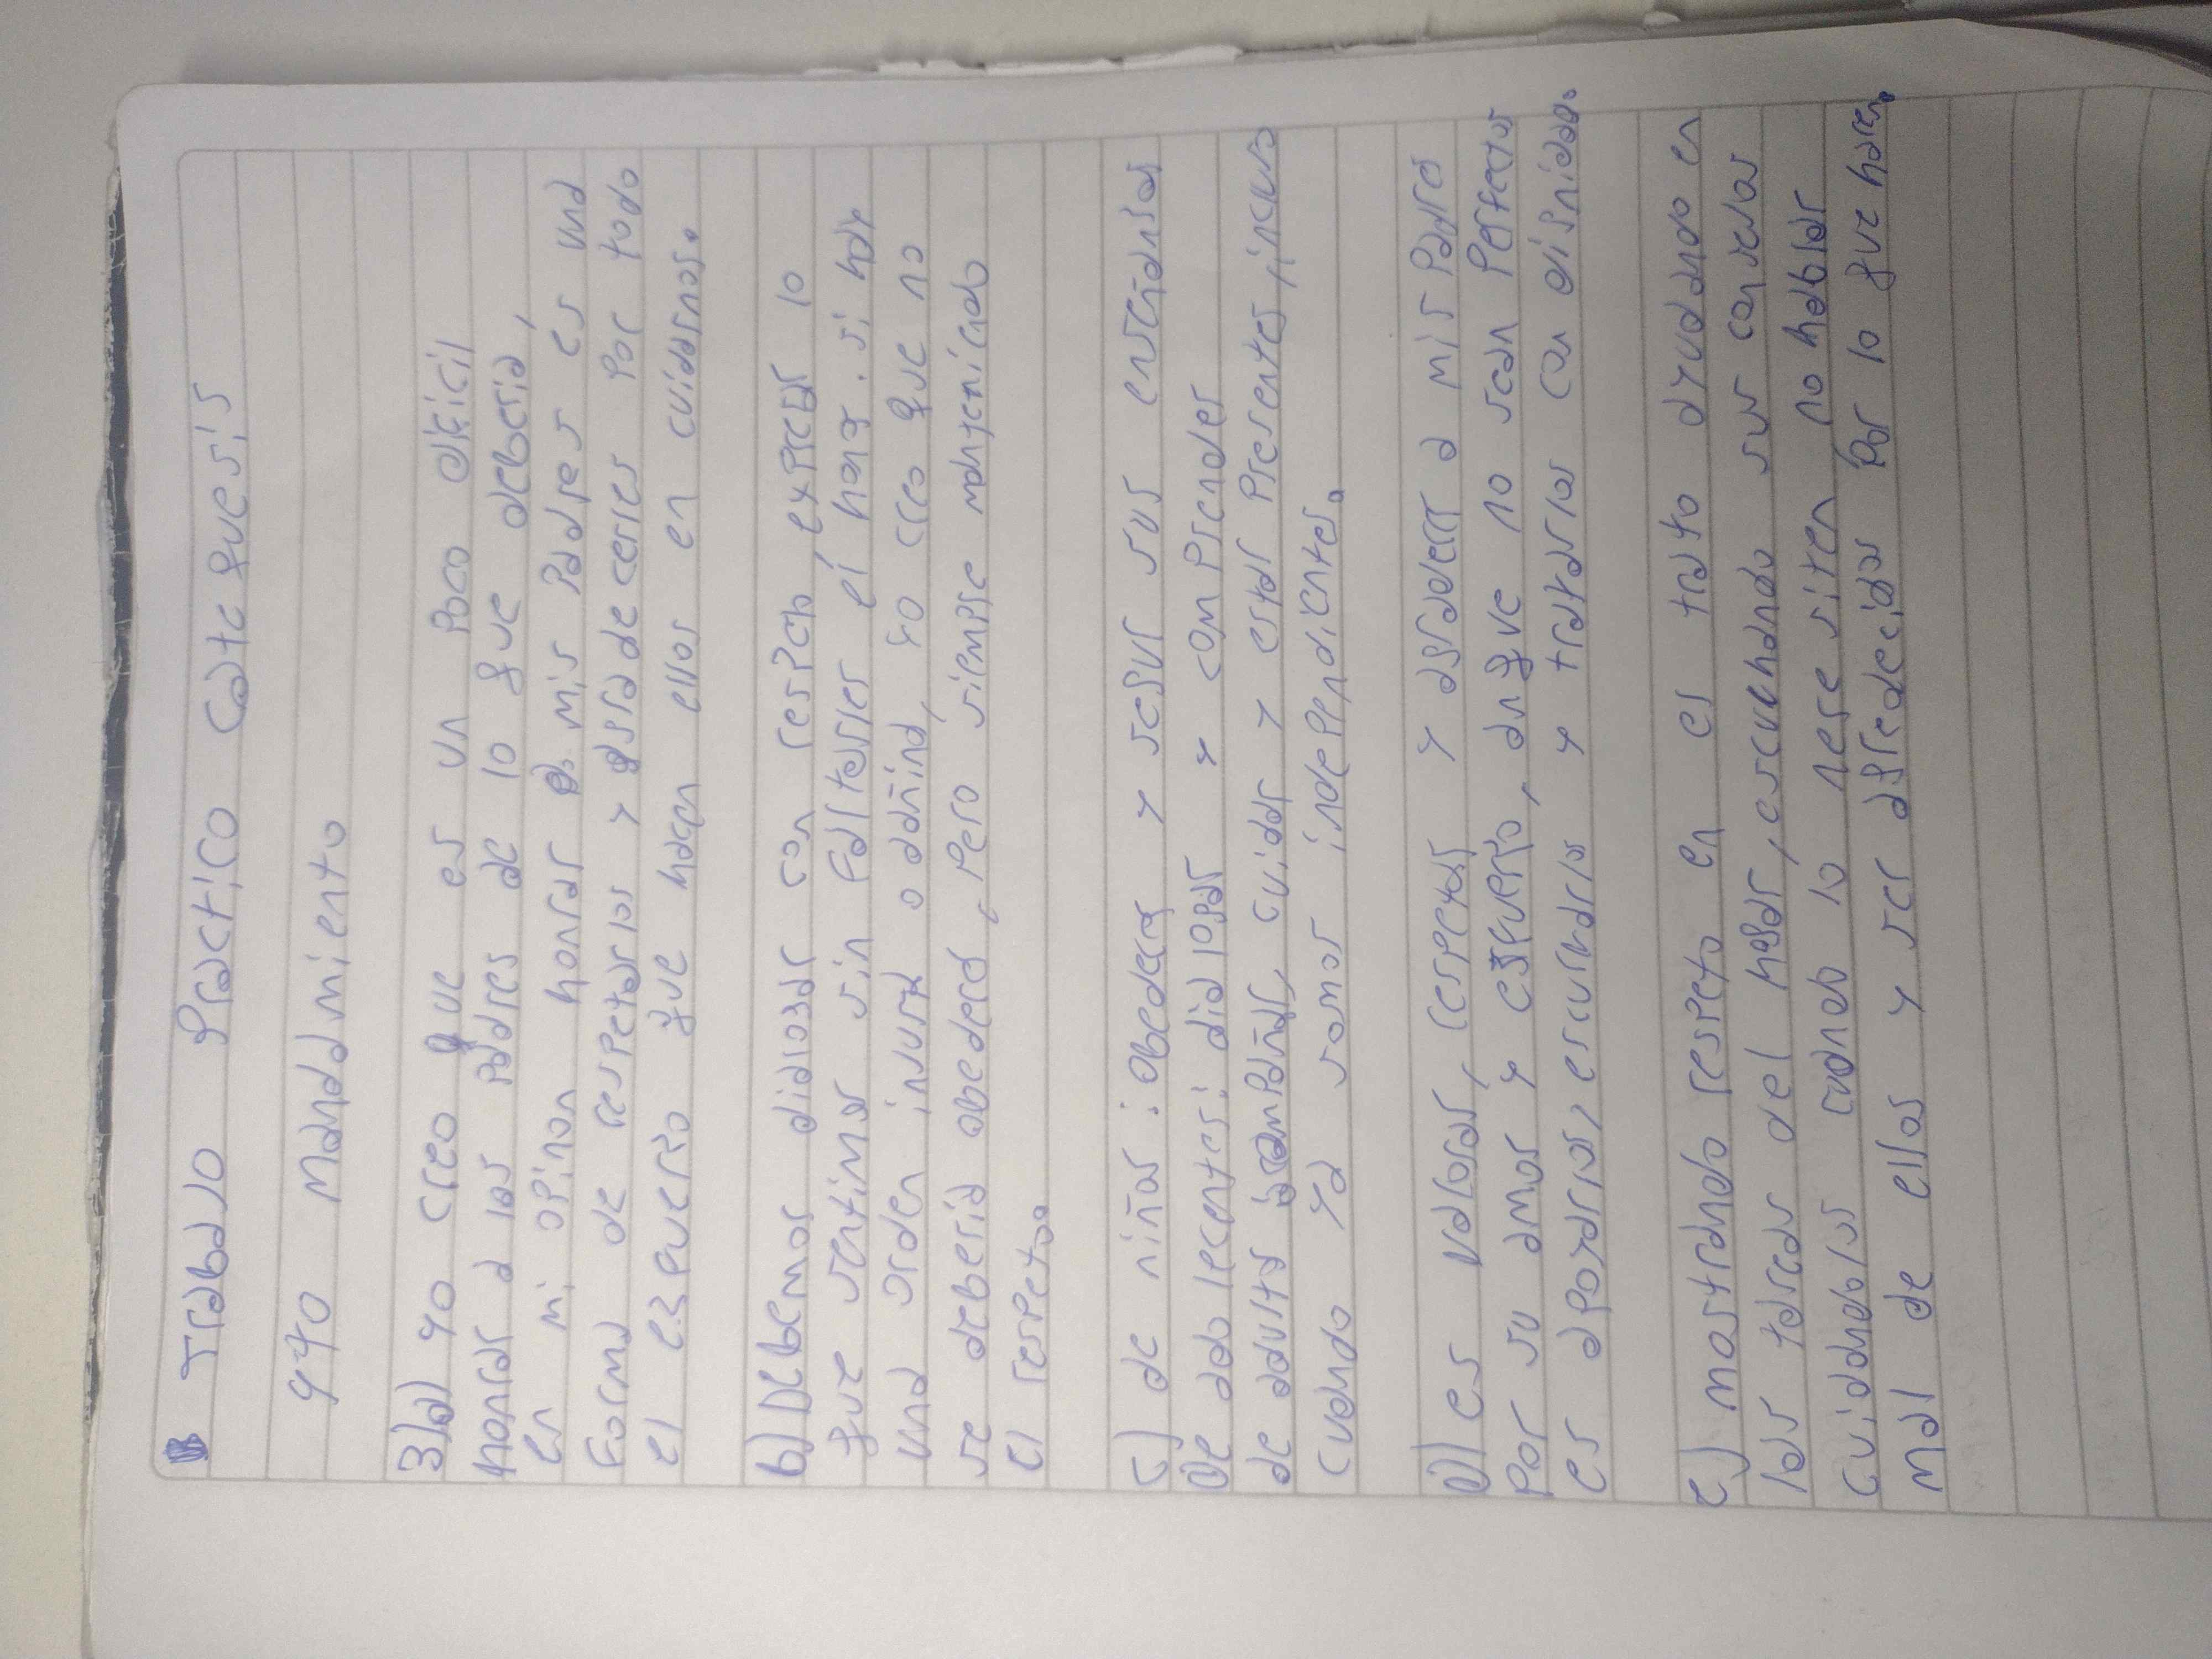 Trabajo Practico Catequesis
4to Mandamiento
3)a) yo creo que es un Poco dificil
honrar a los Padres de lo que deberia,
en mi opinon honrar a mis Padres es una
Forma de respetarlos y agradecerles Por todo
el esfuerso que hacen ellos en cuidarnos.
b) Debemos dialogar con respeto, expresar lo
que sentimos sin Faltarles el honor. si hay
una orden injusta o dañina, yo creo que no
se deberia obedecer, Pero siempre mantenieado
el respeto.
c) de niños: obedecer y seguir sus enseñansas
De adolecentes: dialogar y comPrender
de adultos: acomPañar, cuidar y estar Presentes, incluso
cuando ya somos indePendientes.
d) es valorar, respetar y agradecer a mis Padres
Por su amor y esfuerso, aunque no sean Perfectos
es aPoyarlos, escucharlos y tratarlos con dignidad.
e) mostrando respeto en el trato ayudando en
las tareas del hogar, escuchando sus consejos
cuidandolos cuando lo nesesiten no hablar
mal de ellos y ser agradecidos Por lo que hacen.